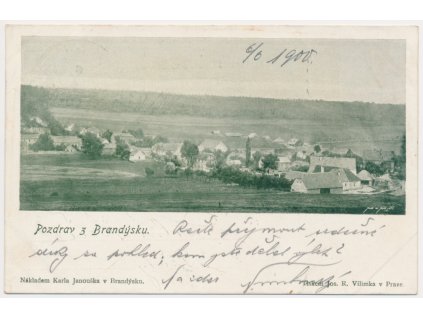 6/6 1900.
Pozdrav z Brandýsku. Račte přijmout srdečné
díky za pohled; kam jste dělal výlet?
Na zdar
Nákladem Karla Janouška v Brandýsku. Tiskem Jos. R. Vilímka v Praze.